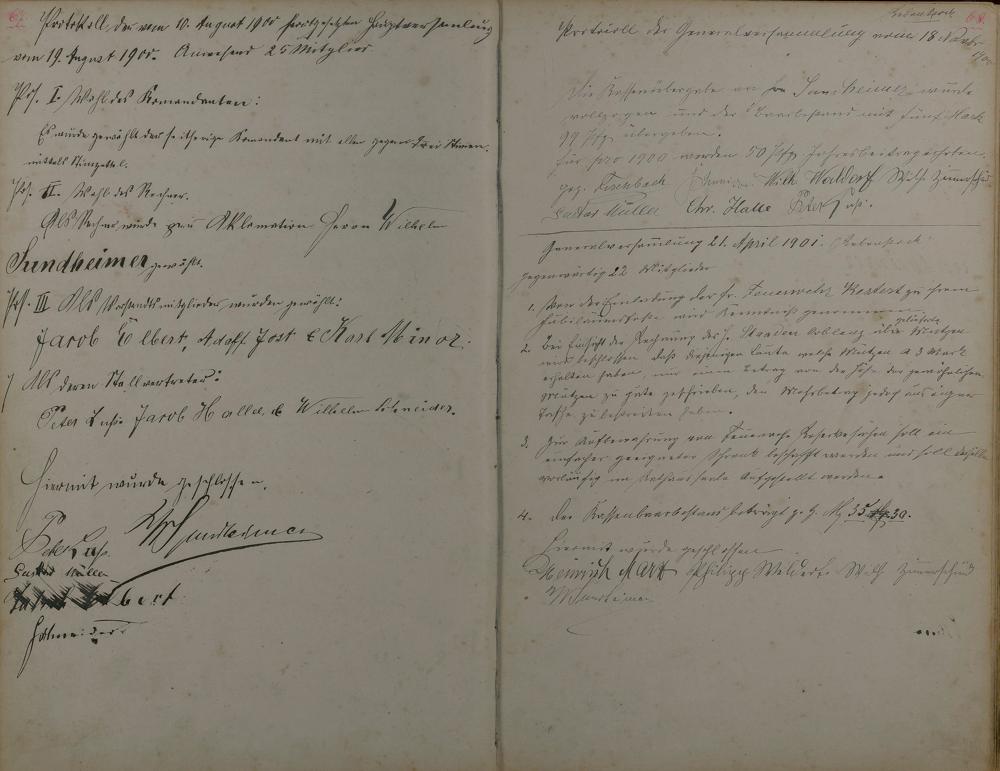 67.
Protokoll, der vom 10. August 1900 festgesetzten Hauptversammlung
vom 19. August 1900. Anwesend 25 Mitglieder
Pos. I. Wahl des Komandanten:
Es wurde gewählt der seitherige Komandant mit allen gegen drei Stimmen.
mittels Stimzettel.
Pos. II. Wahl des Rechner.
Als Rechner wurde per Aklamation Herrn Wilhelm
Sundheimer gewählt.
Pos. III Als Vorstandsmitglieder wurden gewählt:
Jacob Elbert, Adolf Jost & Karl Minor.
Als deren Stellvertreter:
Peter Jacob Halle & Wilhelm Schneider.
Hiermit wurde geschlossen.
Peter W Sundheimer
Gustav Müller
Elbert
Schneider
68.
Protocoll der Generalversammlung vom 18
Die Kassenübergabe an Sundheimer wurde
vollzogen und der Baarbestand mit fünf Mark
99 Pfg übergeben.
Für pro 1900 werden 50 Pfg Jahresbeitrag erhoben.
gez. Fischbach Wilh. Waldorf Wilh. Zimmerschied
Gustav Müller Chr. Halle Peter
Generalversammlung 21. April 1901.
gegenwärtig 22 Mitglieder
1. Von der Einladung der fr. Feuerwehr Westert zu ihrem
Jubiläumsfeste wird Kenntniß genommen
2. Bei Einsicht der Rechnung des H. Coblenz über Mützen
wird beschlossen daß diejenigen Leute welche Mützen a 3 Mark
erhalten haben, nur einen Betrag von der Höhe der gewöhnlichen
Mützen zu gute geschrieben, den Mehrbetrag jedoch aus eigner
Tasche zu bestreiten haben.
3. Zur Aufbewahrung von soll ein
einfacher geeigneter Schrank beschafft werden und soll derselbe
vorläufig im Rathaussaale aufgestellt werden.
4. Der Kassenbaarbestand beträgt z. Z. M 35 30.
Hiermit wurde geschlossen
Heinrich Marx Philipp Waldorf Wilh Zimmerschied
W Sundheimer